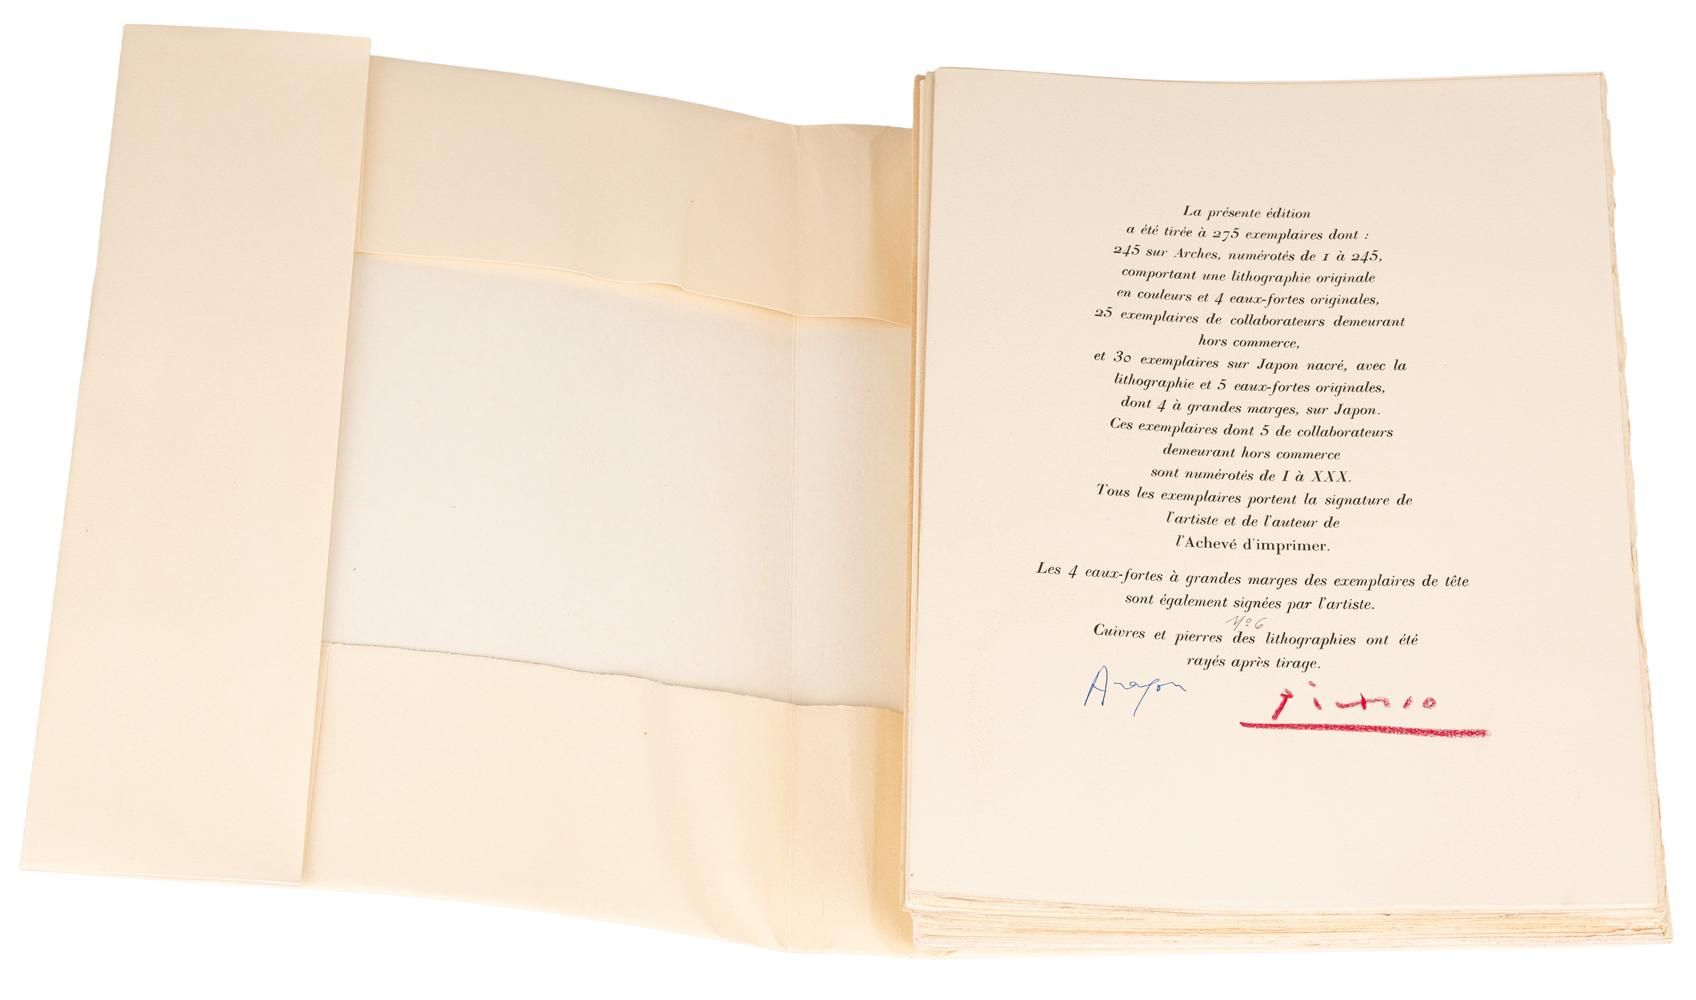 La présente édition
a été tirée à 275 exemplaires dont :
245 sur Arches, numérotés de 1 à 245,
comportant une lithographie originale
en couleurs et 4 eaux-fortes originales,
25 exemplaires de collaborateurs demeurant
hors commerce,
et 30 exemplaires sur Japon nacré, avec la
lithographie et 5 eaux-fortes originales,
dont 4 à grandes marges, sur Japon.
Ces exemplaires dont 5 de collaborateurs
demeurant hors commerce
sont numérotés de I à XXX.
Tous les exemplaires portent la signature de
l'artiste et de l'auteur de
l'Achevé d'imprimer.
Les 4 eaux-fortes à grandes marges des exemplaires de tête
sont également signées par l'artiste.
Nº 6
Cuivres et pierres des lithographies ont été
rayés après tirage.
Aragon
Picasso